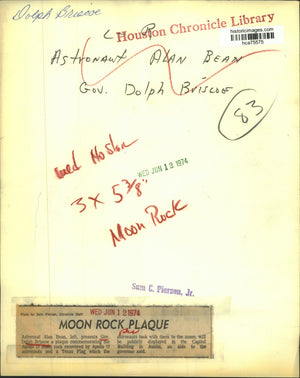 Dolph Briscoe
Houston Chronicle Library
historicimages.com
hca75575
L R
Astronaut Alan Bean
Gov. Dolph Briscoe
83
Wed Hoston
WED JUN 12 1974
3 X 5 3/8"
Moon Rock
Sam C. Pierson, Jr.
WED JUN 12 1974
MOON ROCK PLAQUE
Astronaut Alan Bean, left, presents Gov.
Dolph Briscoe a plaque commemorating the
moon rock recovered by Apollo
astronauts and a Texas Flag which the
astronauts took with them to the moon, will
be publicly displayed in the Capitol
Building in Austin, an aide to the
governor said.